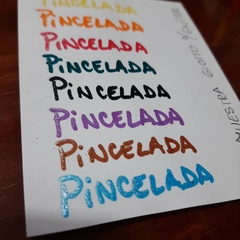 PINCELADA
PINCELADA
PINCELADA
PINCELADA
PINCELADA
PINCELADA
PINCELADA
PINCELADA
NUESTRA